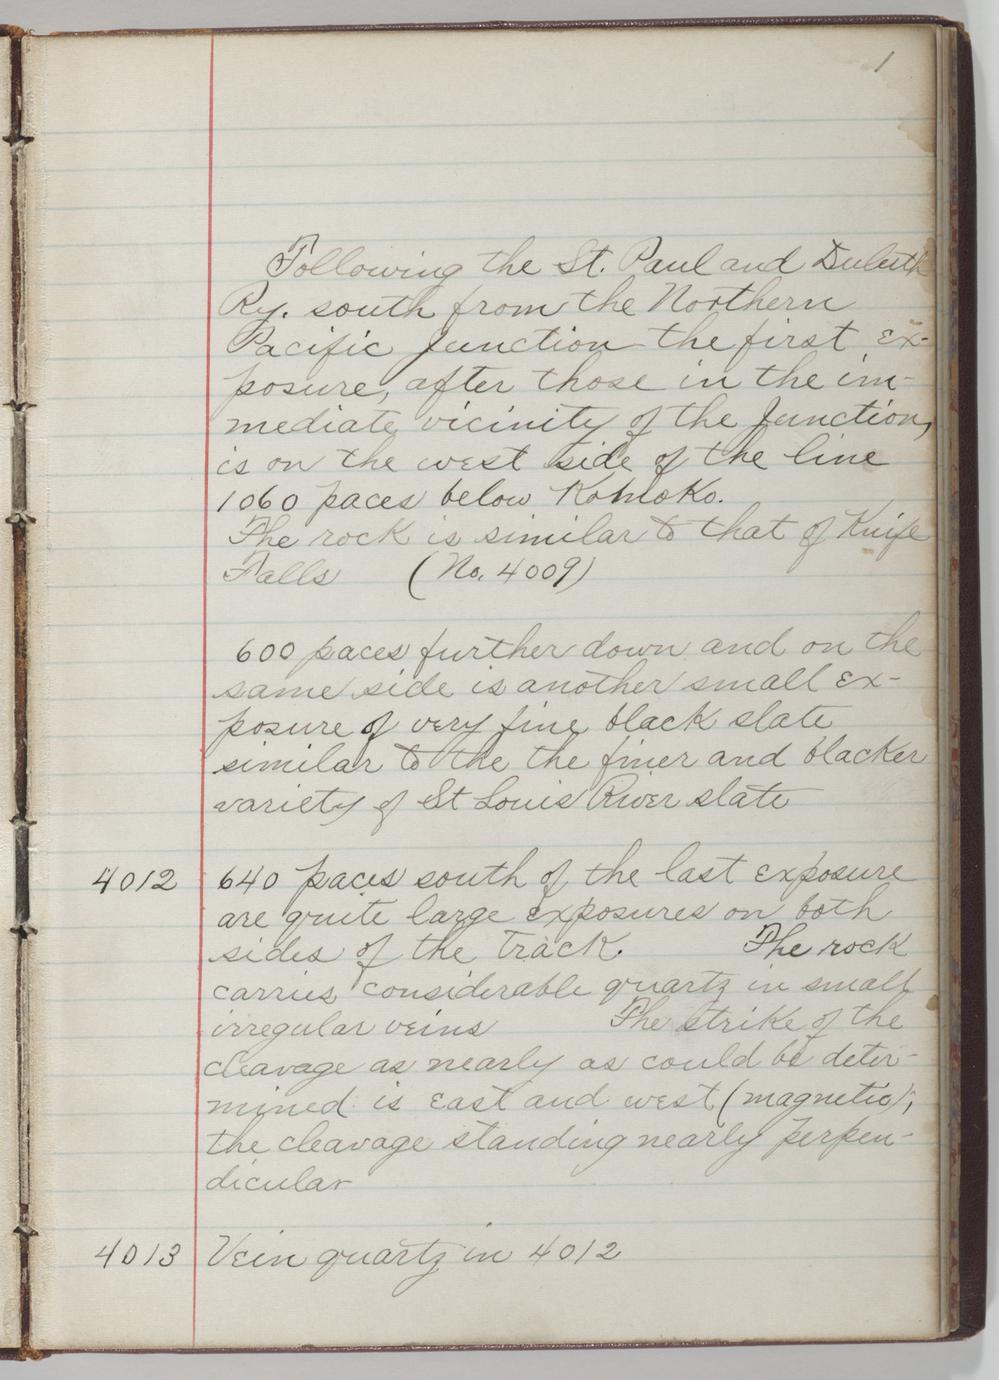 1
Following the St. Paul and Duluth
Ry. south from the Northern
Pacific Junction the first ex-
posure, after those in the im-
mediate vicinity of the Junction,
is on the west side of the line
1060 paces below Komoko.
The rock is similar to that of Knife
Falls (No. 4009)
600 paces further down and on the
same side is another small ex-
posure of very fine black slate
similar to the the finer and blacker
variety of St Louis River slate
4012 640 paces south of the last exposure
are quite large exposures on both
sides of the track. The rock
carries considerable quartz in small
irregular veins The strike of the
cleavage as nearly as could be deter-
mined is east and west (magnetic);
the cleavage standing nearly perpen-
dicular
4013 Vein quartz in 4012